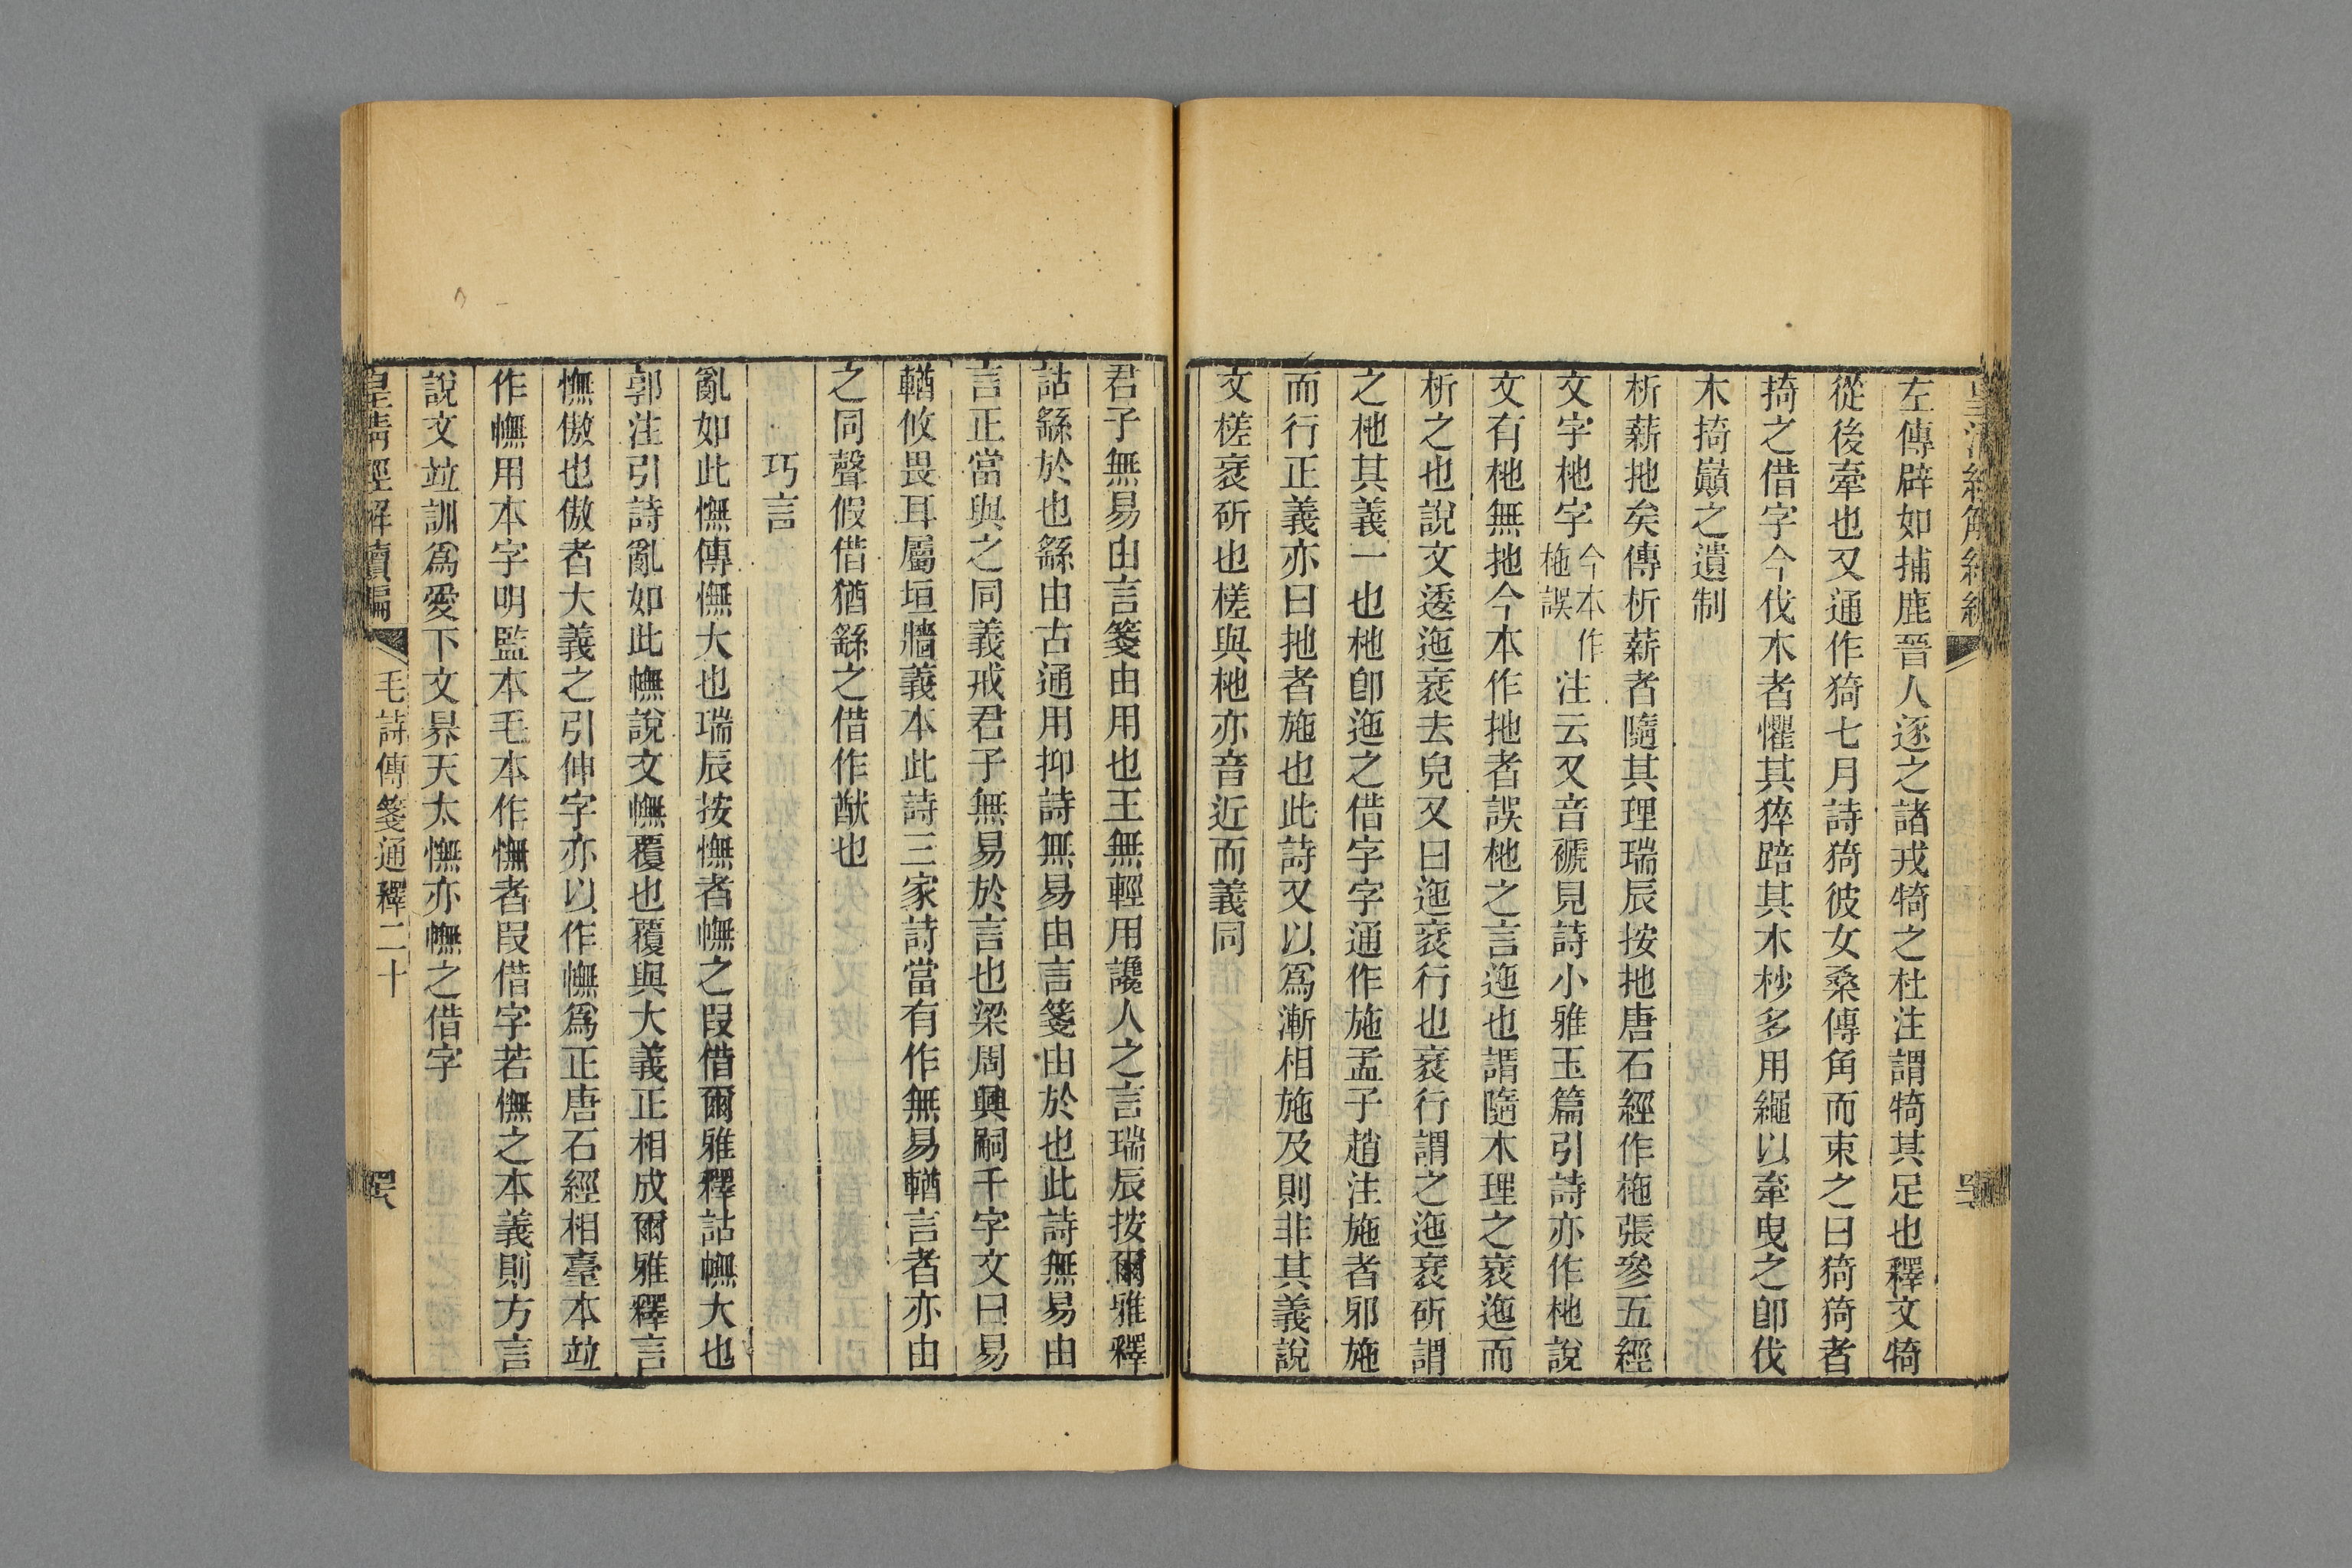 左傳辟如捕鹿晉人逐之諸戎犄之杜注謂犄其足也釋文犄
從後牽也又通作猗七月詩猗彼女桑傳角而束之曰猗猗者
掎之借字今伐木者懼其猝踣其木杪多用繩以牽曳之卽伐
木掎巔之遺制
析薪扡矣傳析薪者隨其理瑞辰按扡唐石經作杝張參五經
文字杝字今本作拖誤注云又音褫見詩小雅玉篇引詩亦作杝說
文有杝無扡今本作扡者誤杝之言迤也謂隨木理之衺迤而
析之也說文逶迆衺去皃又曰迆衺行也衺行謂之迆衺斫謂
之杝其義一也杝卽迆之借字字通作施孟子趙注施者邪施
而行正義亦曰扡者施也此詩又以爲漸相施及則非其義說
文槎衺斫也槎與杝亦音近而義同
君子無易由言箋由用也王無輕用讒人之言瑞辰按爾雅釋
詁繇於也繇由古通用抑詩無易由言箋由於也此詩無易由
言正當與之同義戒君子無易於言也梁周興嗣千字文曰易
輶攸畏耳屬垣牆義本此詩三家詩當有作無易輶言者亦由
之同聲假借猶繇之借作猷也
巧言
亂如此憮傳憮大也瑞辰按憮者幠之叚借爾雅釋詁幠大也
郭注引詩亂如此幠說文幠覆也覆與大義正相成爾雅釋言
憮傲也傲者大義之引伸字亦以作幠爲正唐石經相臺本竝
作幠用本字明監本毛本作憮者叚借字若憮之本義則方言
說文竝訓爲愛下文昦天大憮亦幠之借字
皇清經解續編
毛詩傳箋通釋二十